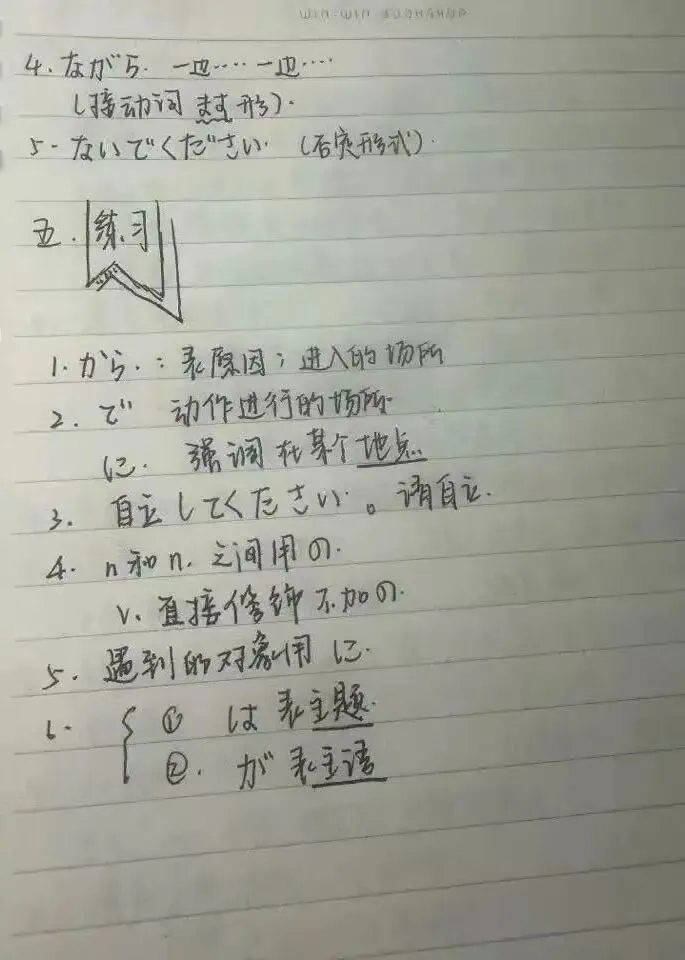 4. ながら. 一边‥‥一边‥‥
(接动词 ます形).
5. ないでください. (否定形式).
五. 练习
1. から. : 表原因; 进入的场所
2. で 动作进行的场所.
に. 强调在某个地点
3. 自立してください. 。请自立.
4. n和n. 之间用の.
v. 直接修饰不加の.
5. 遇到的对象用に.
6. { ① は表主题.
②. が表主语